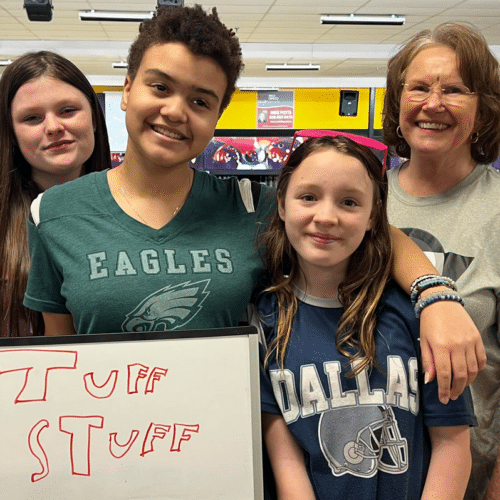 EAGLES
DALLAS
TUFF
STUFF